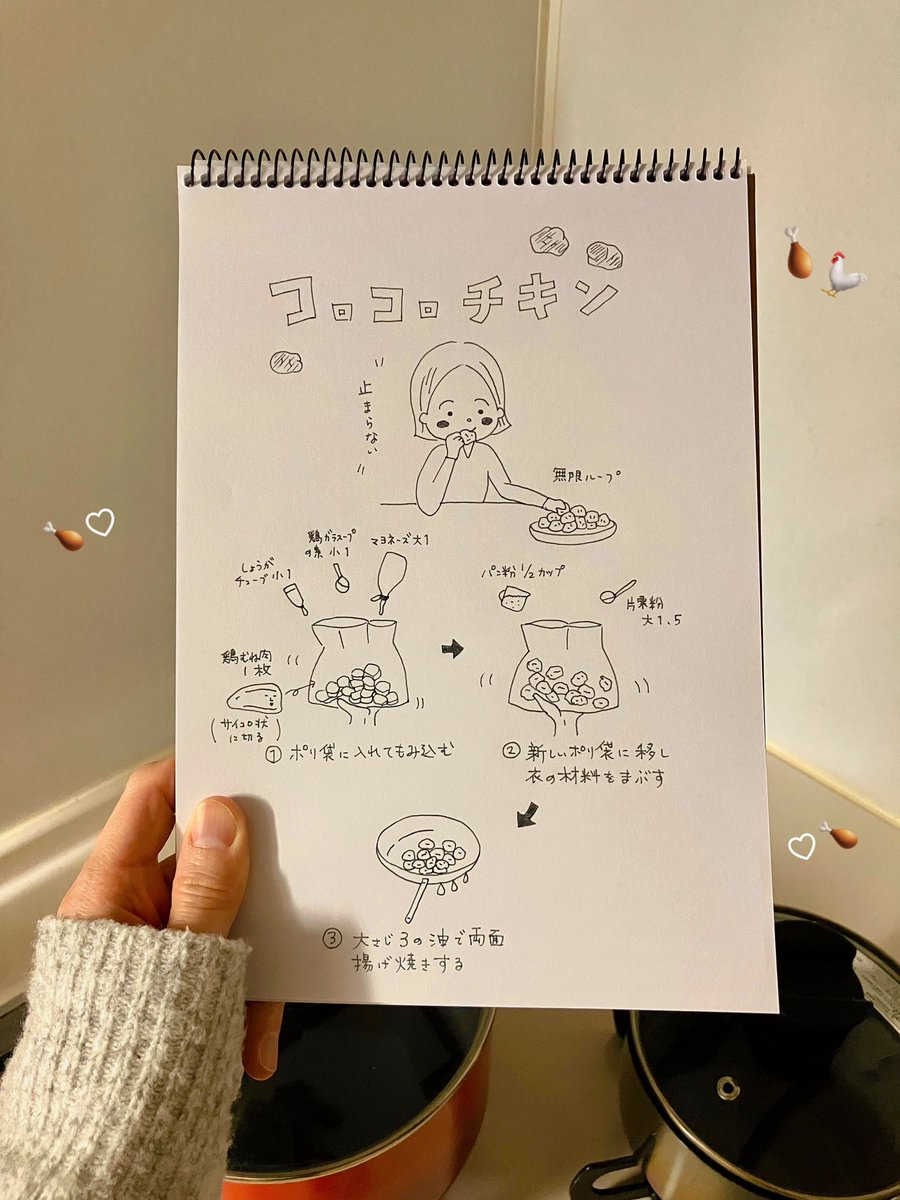 コロコロチキン
"止まらない"
無限ループ
しょうが
チューブ小1
鶏ガラスープ
の素 小1
マヨネーズ大1
鶏むね肉
1枚
(サイコロ状
に切る)
① ポリ袋に入れてもみ込む
パン粉 1/2カップ
片栗粉
大1.5
② 新しいポリ袋に移し
衣の材料をまぶす
③ 大さじ3の油で両面
揚げ焼きする